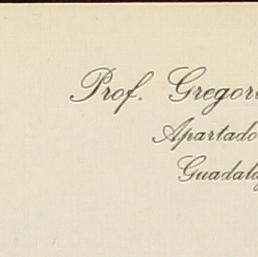 Prof. Gregori
Apartado
Guadala